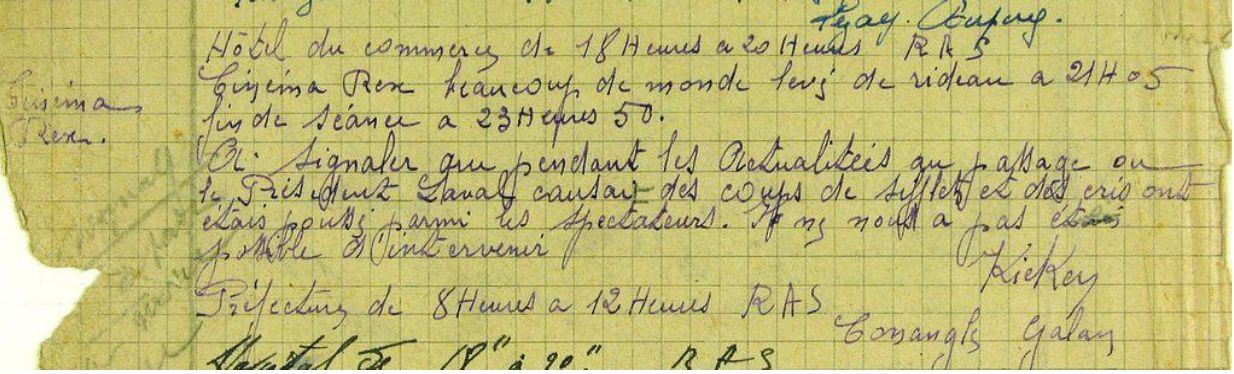 Hôtel du commerce de 18 Heures a 20 Heures RAS
Cinéma Rex.
Cinéma Rex beaucoup de monde levé de rideau a 21H05
fin de séance a 23 Heures 50.
A signaler que pendant les Actualitées au passage ou
le Président Laval causai des coups de sifflet et des cris ont
étais poussé parmi les spectateurs. Il ne nous a pas étais
possible d'intervenir
Kickey
Préfecture de 8 Heures a 12 Heures RAS
Galan
de 18" à 20" RAS